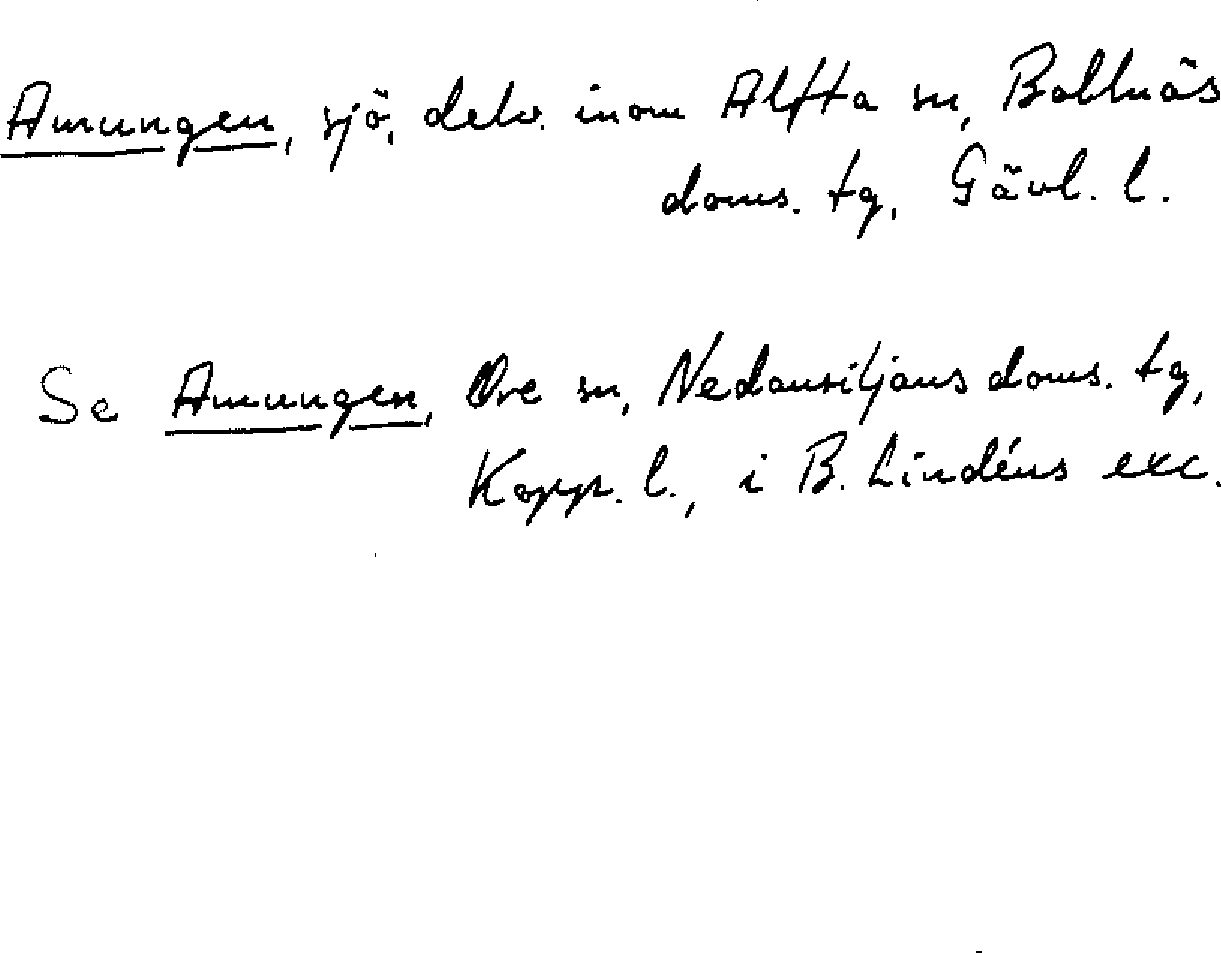 Amungen, sjö, delv. inom Alfta sn, Bollnäs
doms. tg, Gävl. l.
Se Amungen, Ore sn, Nedansiljans doms. tg,
Kopp. l., i B. Lindéns exc.